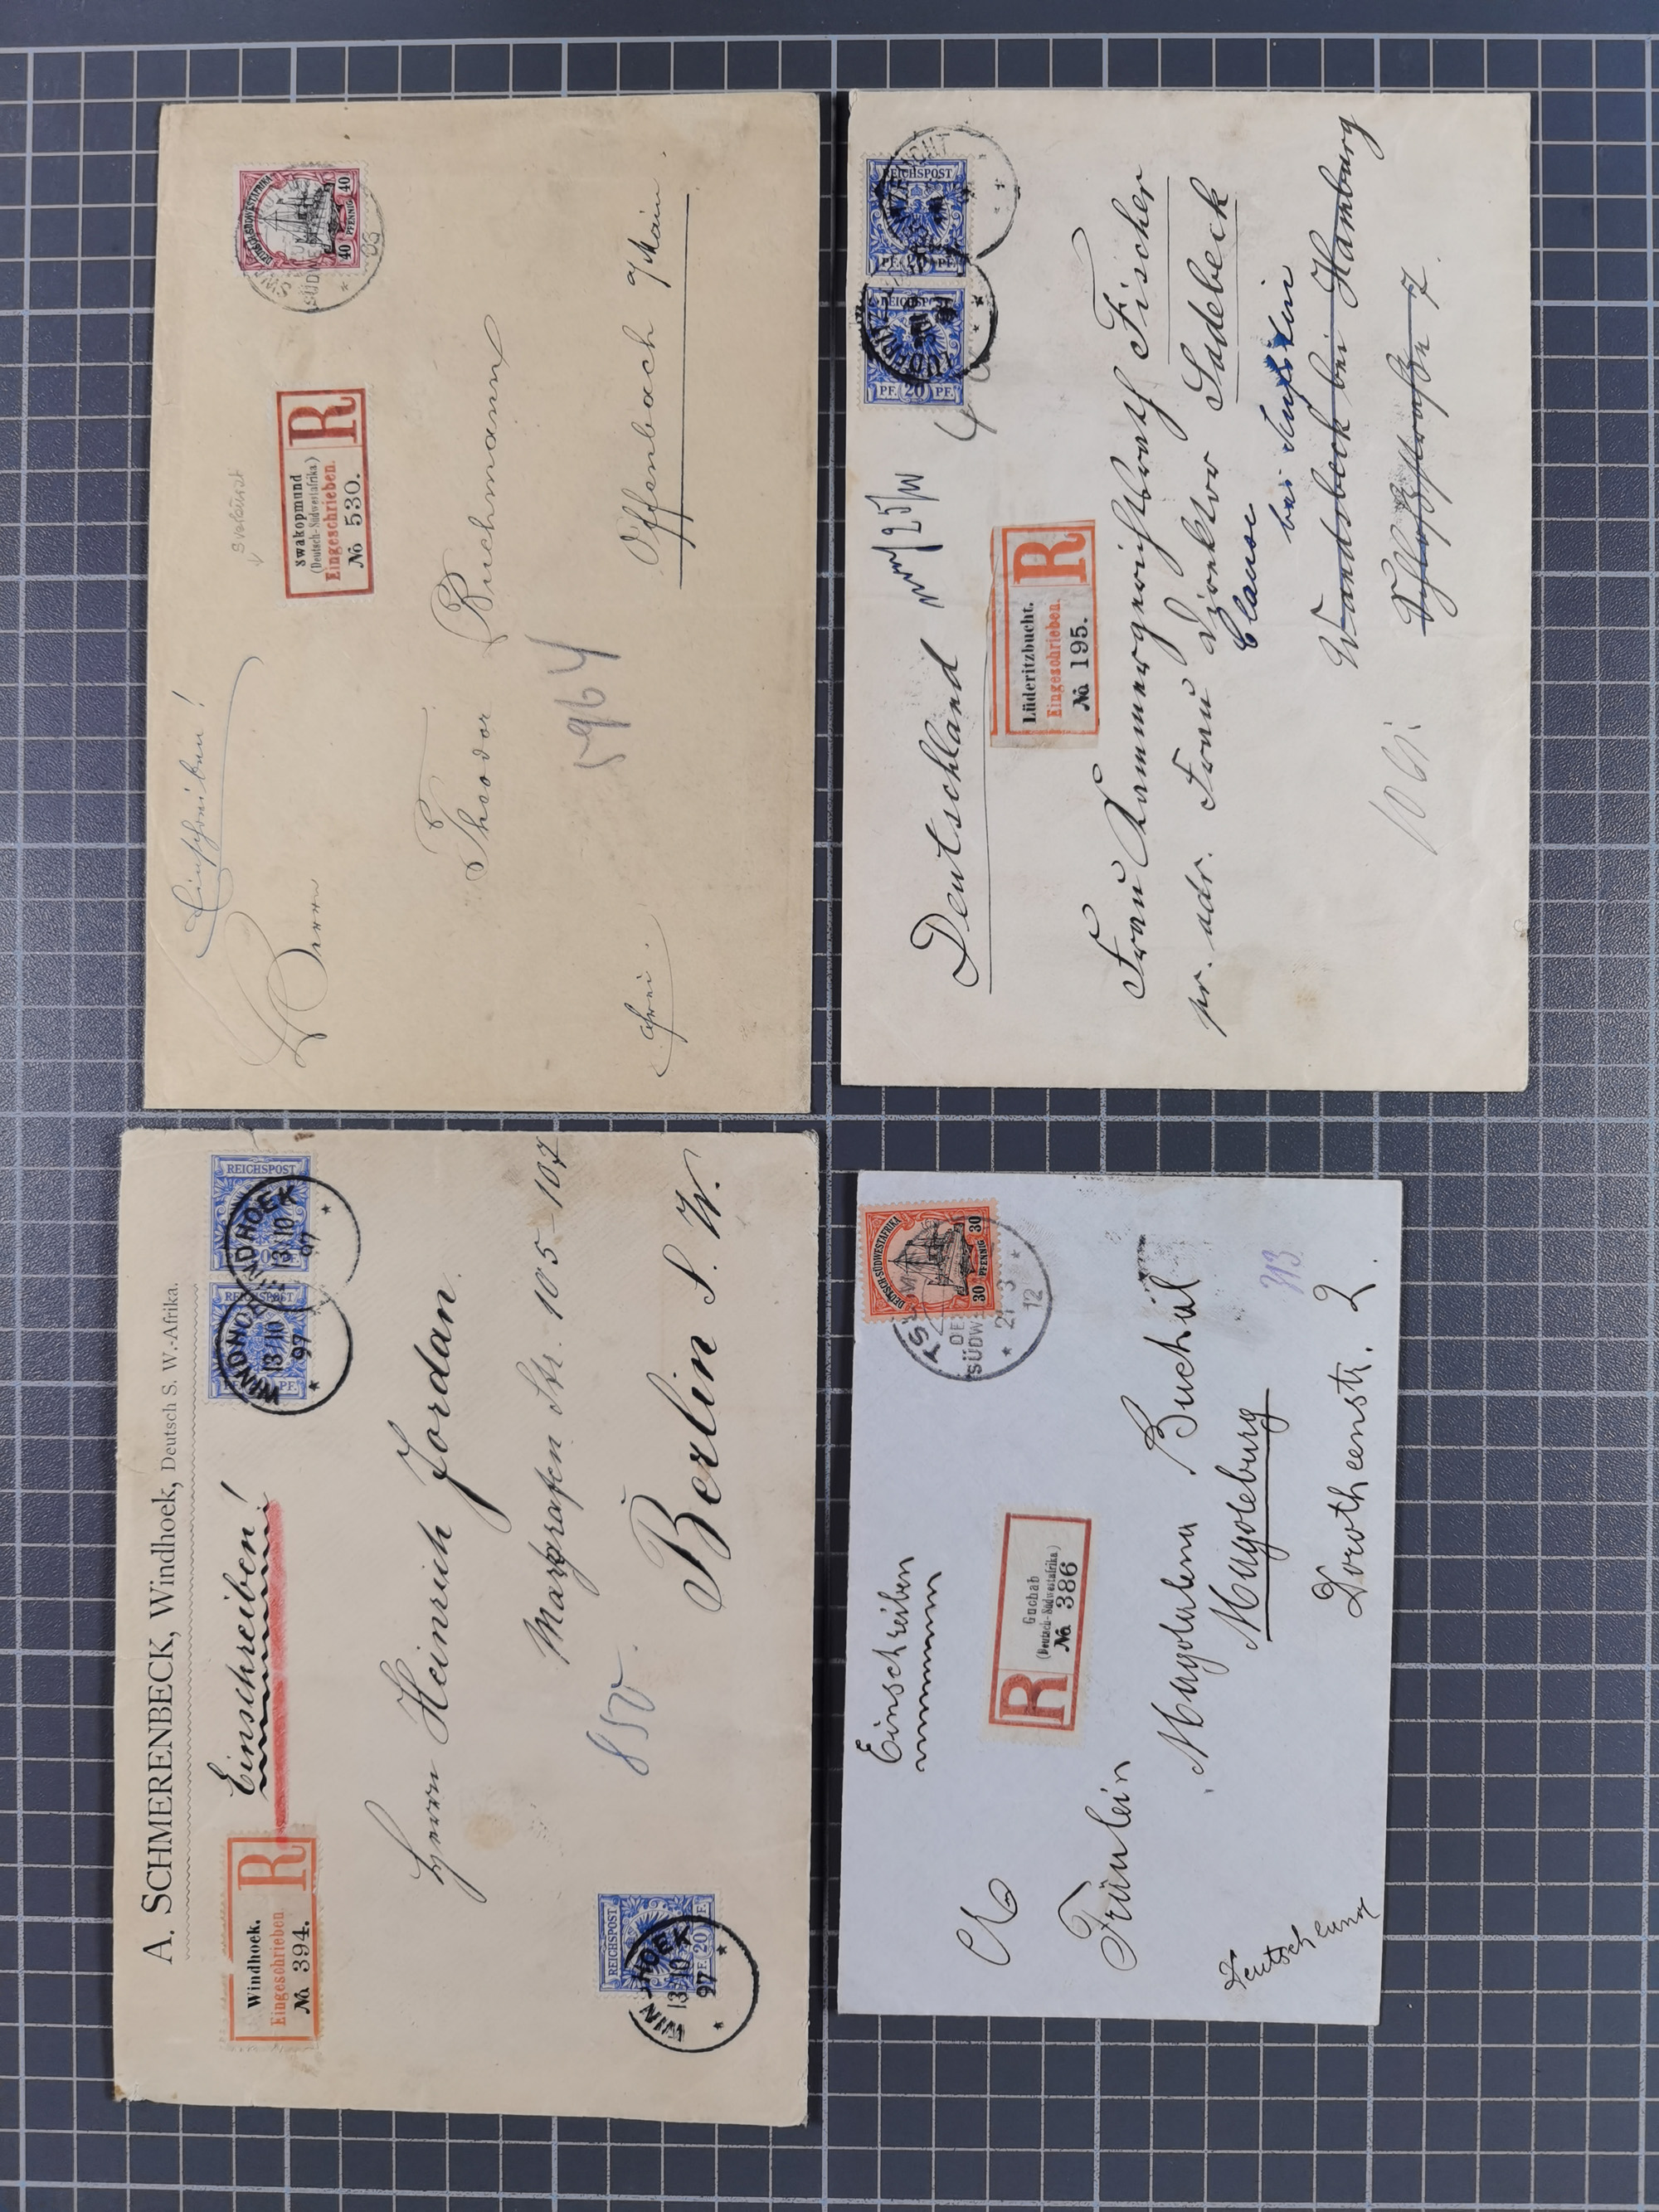 Einschreiben!
Herrn
Theodor Buchmann
Offenbach a/Main.
frei.
5964
Swakopmund
(Deutsch-Südwestafrika)
Eingeschrieben.
No 530.
R
DEUTSCH-SÜDWESTAFRIKA
40 PFENNIG 40
SÜDWE
Deutschland
Lüderitzbucht.
Eingeschrieben.
No 195.
R
REICHSPOST
PF. 20 PF.
REICHSPOST
PF. 20 PF.
Frau Kammergerichtsrath Fischer
pr. adr. Frau Direktor Sadebeck
Clause
bei
Wandsbeck bei Hamburg
Schloßstraße 7.
A. SCHMERENBECK, Windhoek, Deutsch S. W.-Afrika.
Einschreiben!
Windhoek.
Eingeschrieben
No 394.
R
REICHSPOST
REICHSPOST
WINDHOEK
13/10
97
WINDHOEK
13/10
97
Herrn Heinrich Jordan.
Markgrafen Str. 105-107
850.
Berlin S. W.
REICHSPOST
PF. 20 PF.
WINDHOEK
13/10
97
Einschreiben
Guchab
(Deutsch-Südwestafrika)
No 386
R
DEUTSCH-SÜDWESTAFRIKA
30 PFENNIG 30
SÜDW
12
Fräulein
Magdalena Buchal
Magdeburg
Dorotheenstr. 2.
313
Deutschland